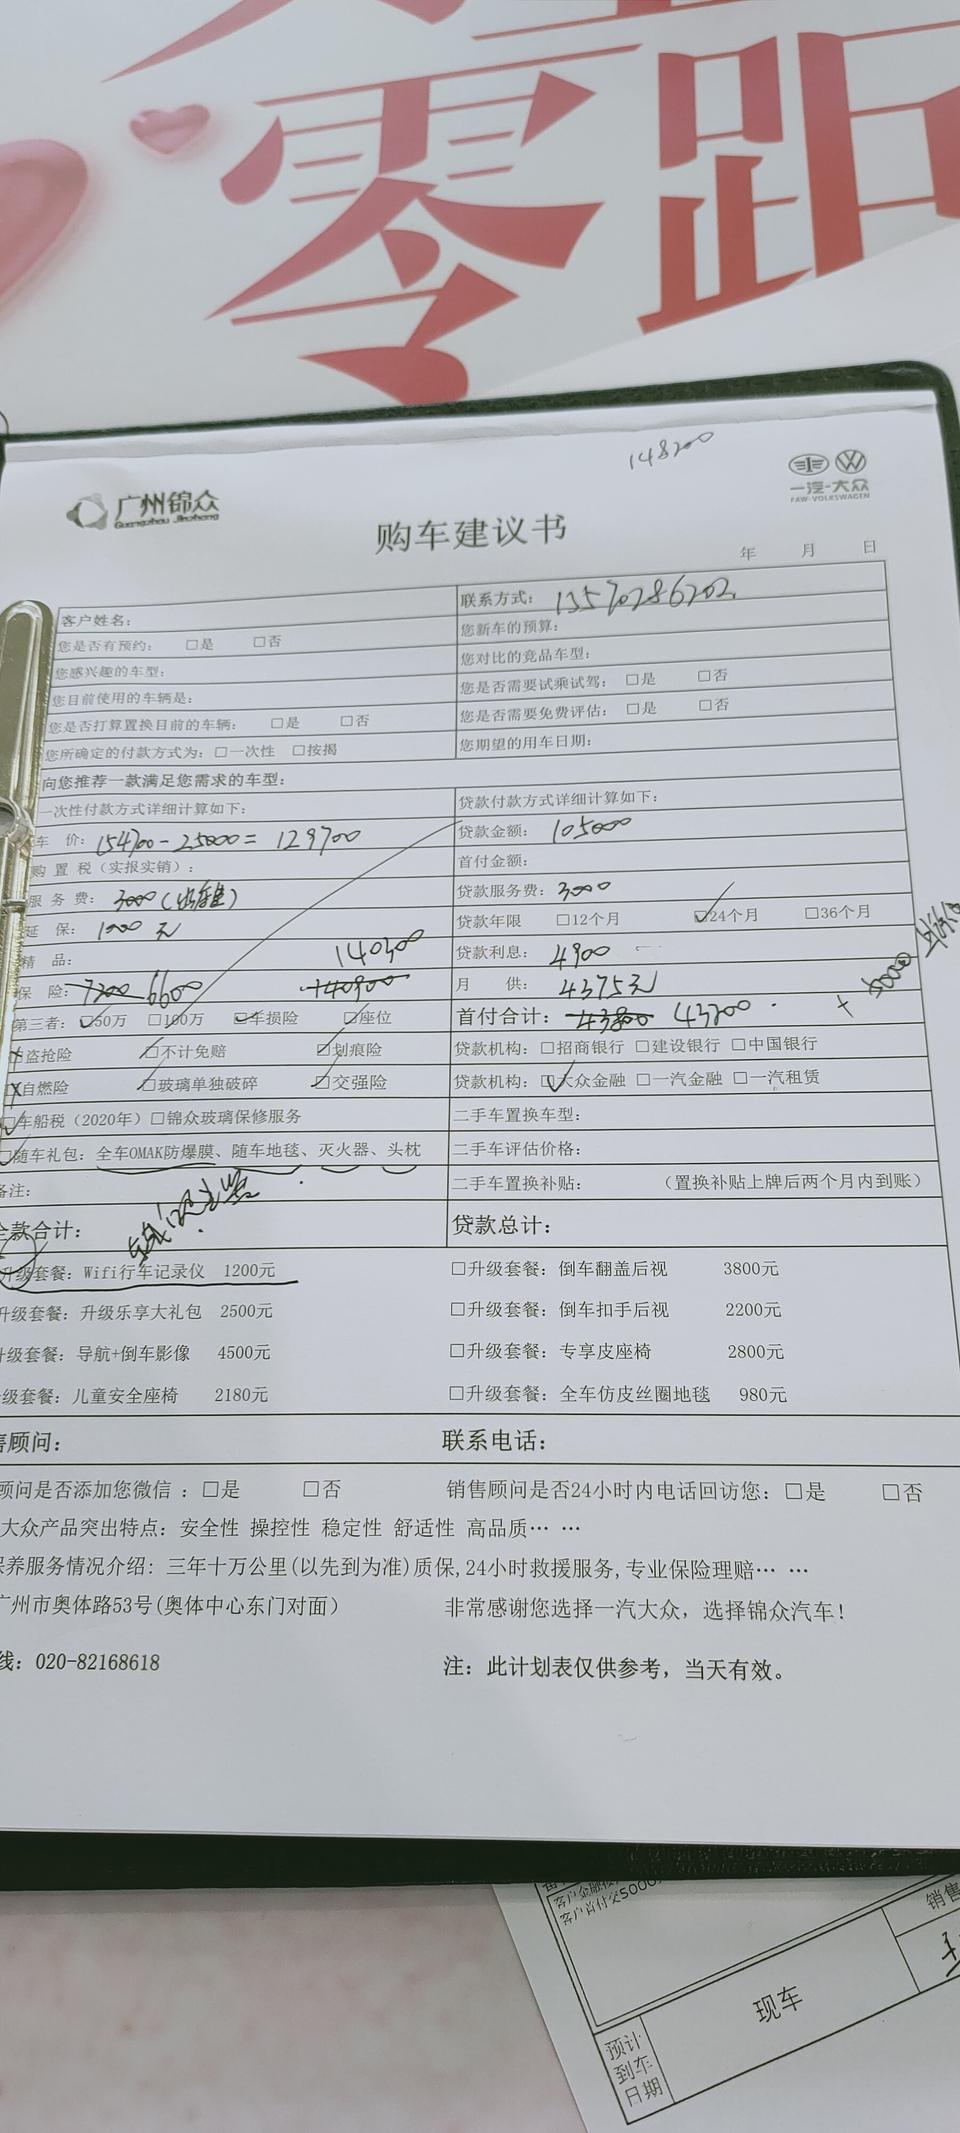 零距
148200
广州锦众
Guangzhou Jinzhong
一汽-大众
FAW-VOLKSWAGEN
购车建议书
年 月 日
客户姓名：
联系方式：13570286202
您是否有预约： □是 □否
您新车的预算：
您感兴趣的车型：
您对比的竞品车型：
您目前使用的车辆是：
您是否需要试乘试驾： □是 □否
您是否打算置换目前的车辆： □是 □否
您是否需要免费评估： □是 □否
您所确定的付款方式为：□一次性 □按揭
您期望的用车日期：
向您推荐一款满足您需求的车型：
一次性付款方式详细计算如下：
贷款付款方式详细计算如下：
车 价：154700-25000= 129700
贷款金额： 105000
购 置 税（实报实销）：
首付金额：
服 务 费： 3000
贷款服务费：3000
延 保： 1000 元
贷款年限 □12个月 ☑24个月 □36个月
精 品： 140300
贷款利息： 4900
保 险：7200 6600 140900
月 供： 4375元
第三者：☑50万 □100万 ☑车损险 ☑座位
首付合计：43800 43200 + 5000
盗抢险 ☑不计免赔 ☑划痕险
贷款机构：□招商银行 □建设银行 □中国银行
自燃险 ☑玻璃单独破碎 ☑交强险
贷款机构：☑大众金融 □一汽金融 □一汽租赁
☑车船税（2020年）□锦众玻璃保修服务
二手车置换车型：
☑随车礼包：全车OMAK防爆膜、随车地毯、灭火器、头枕
二手车评估价格：
备注：
二手车置换补贴： （置换补贴上牌后两个月内到账）
全款合计：
贷款总计：
升级套餐：Wifi行车记录仪 1200元
□升级套餐：倒车翻盖后视 3800元
升级套餐：升级乐享大礼包 2500元
□升级套餐：倒车扣手后视 2200元
升级套餐：导航+倒车影像 4500元
□升级套餐：专享皮座椅 2800元
级套餐：儿童安全座椅 2180元
□升级套餐：全车仿皮丝圈地毯 980元
售顾问：
联系电话：
顾问是否添加您微信 ：□是 □否
销售顾问是否24小时内电话回访您：□是 □否
大众产品突出特点：安全性 操控性 稳定性 舒适性 高品质… …
保养服务情况介绍：三年十万公里(以先到为准)质保,24小时救援服务,专业保险理赔… …
广州市奥体路53号(奥体中心东门对面）
非常感谢您选择一汽大众，选择锦众汽车！
线：020-82168618
注：此计划表仅供参考，当天有效。
客户金融
客户首付交5000
销售
现车
预计
到车
日期